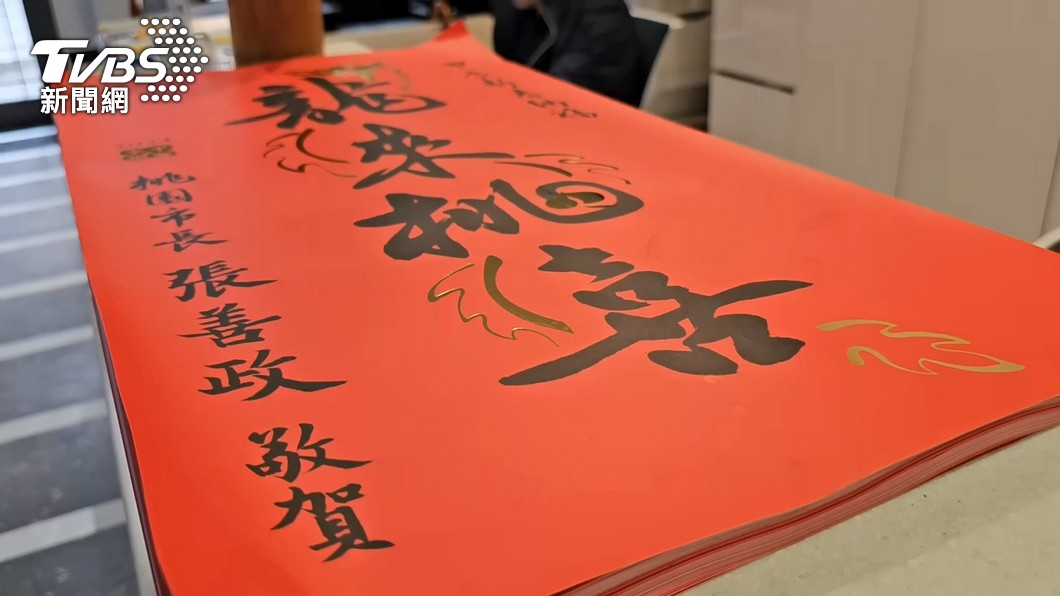 TVBS
新聞網
龍來桃喜
桃園市長 張善政 敬賀